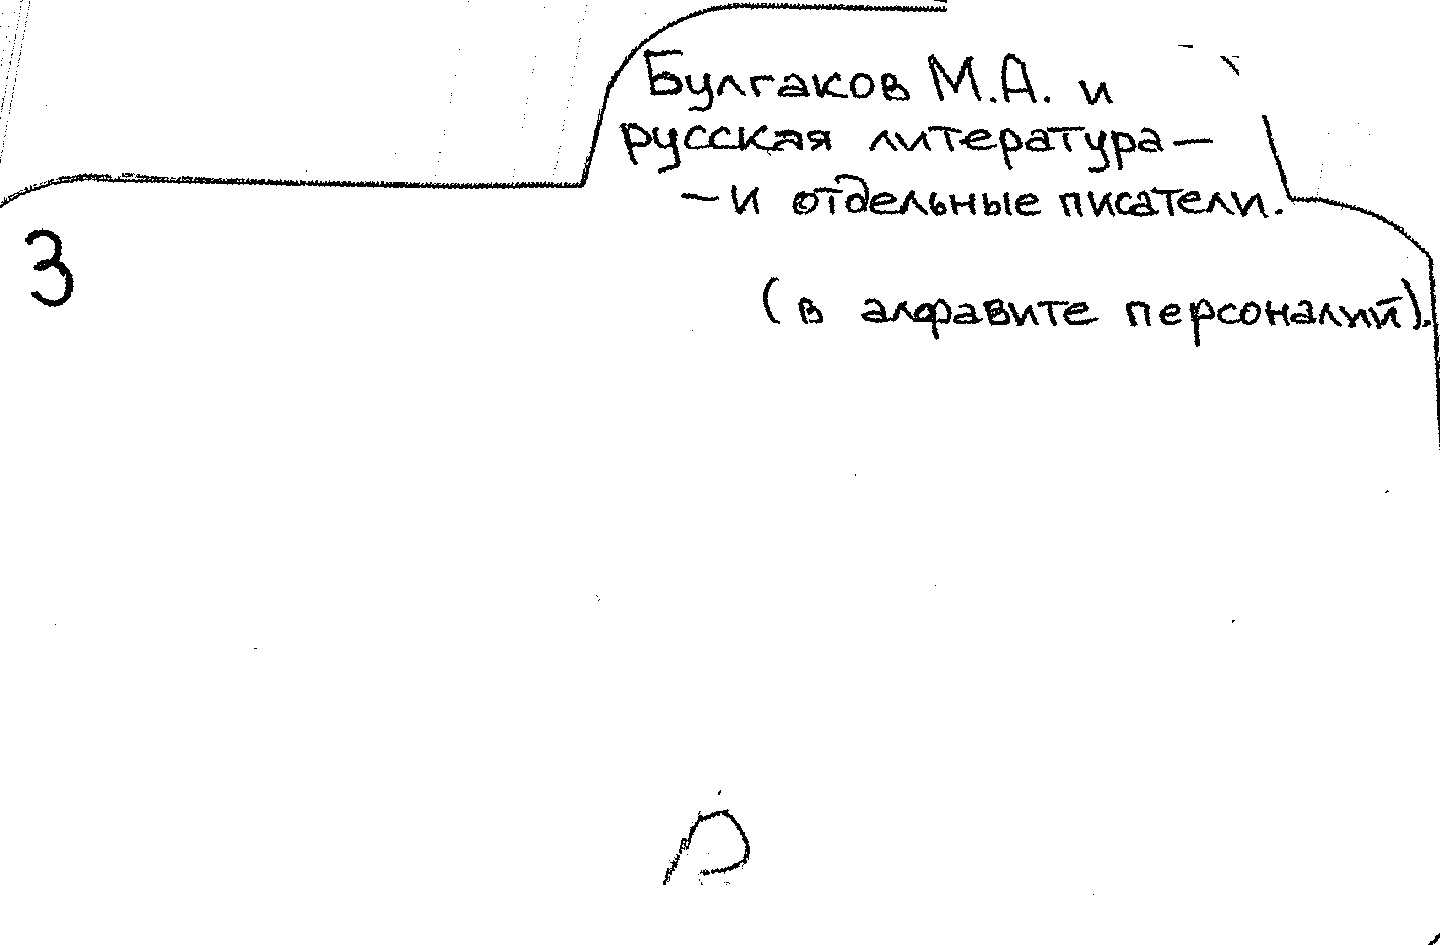 Булгаков М.А. и
русская литература —
— и отдельные писатели.
3
(в алфавите персоналий).